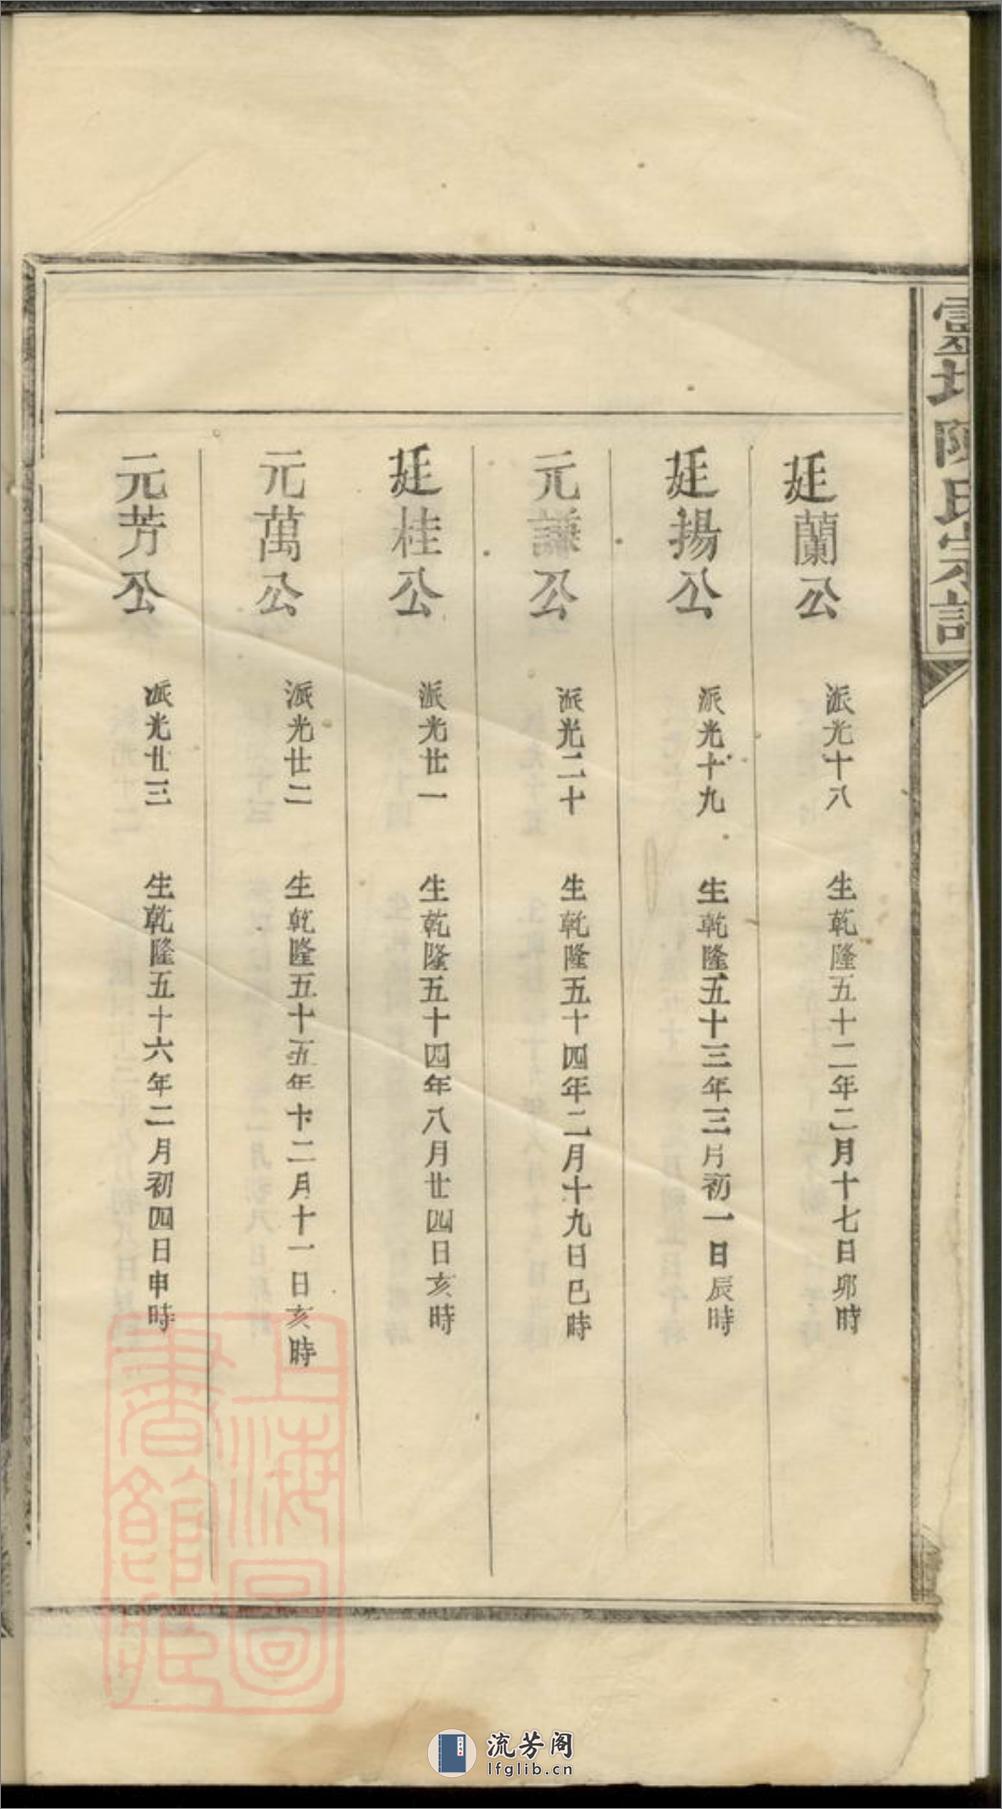 靈地陳氏宗譜
廷蘭公 派光十八 生乾隆五十二年二月十七日卯時
廷揚公 派光十九 生乾隆五十三年三月初一日辰時
元謙公 派光二十 生乾隆五十四年二月十九日巳時
廷桂公 派光廿一 生乾隆五十四年八月廿四日亥時
元萬公 派光廿二 生乾隆五十五年十二月十一日亥時
元芳公 派光廿三 生乾隆五十六年二月初四日申時
上海圖書館藏
流芳阁
lfglib.cn